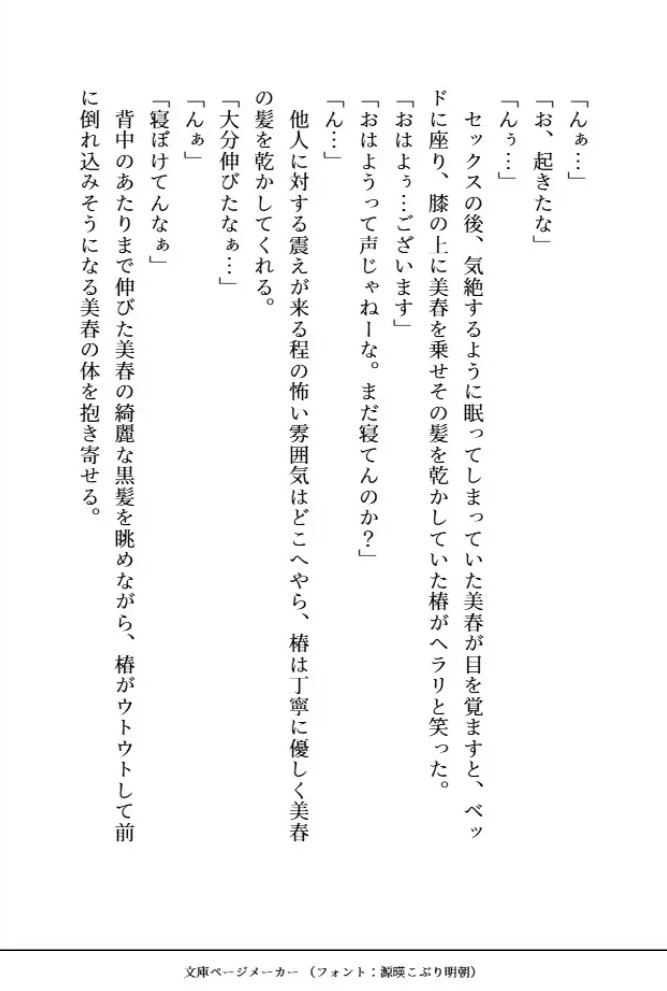 「んぁ…」
「お、起きたな」
「んぅ…」
　セックスの後、気絶するように眠ってしまっていた美春が目を覚ますと、ベッ
ドに座り、膝の上に美春を乗せその髪を乾かしていた椿がヘラリと笑った。
「おはよぅ…ございます」
「おはようって声じゃねーな。まだ寝てんのか？」
「ん…」
　他人に対する震えが来る程の怖い雰囲気はどこへやら、椿は丁寧に優しく美春
の髪を乾かしてくれる。
「大分伸びたなぁ…」
「んぁ」
「寝ぼけてんなぁ」
　背中のあたりまで伸びた美春の綺麗な黒髪を眺めながら、椿がウトウトして前
に倒れ込みそうになる美春の体を抱き寄せる。
文庫ページメーカー（フォント：源暎こぶり明朝）